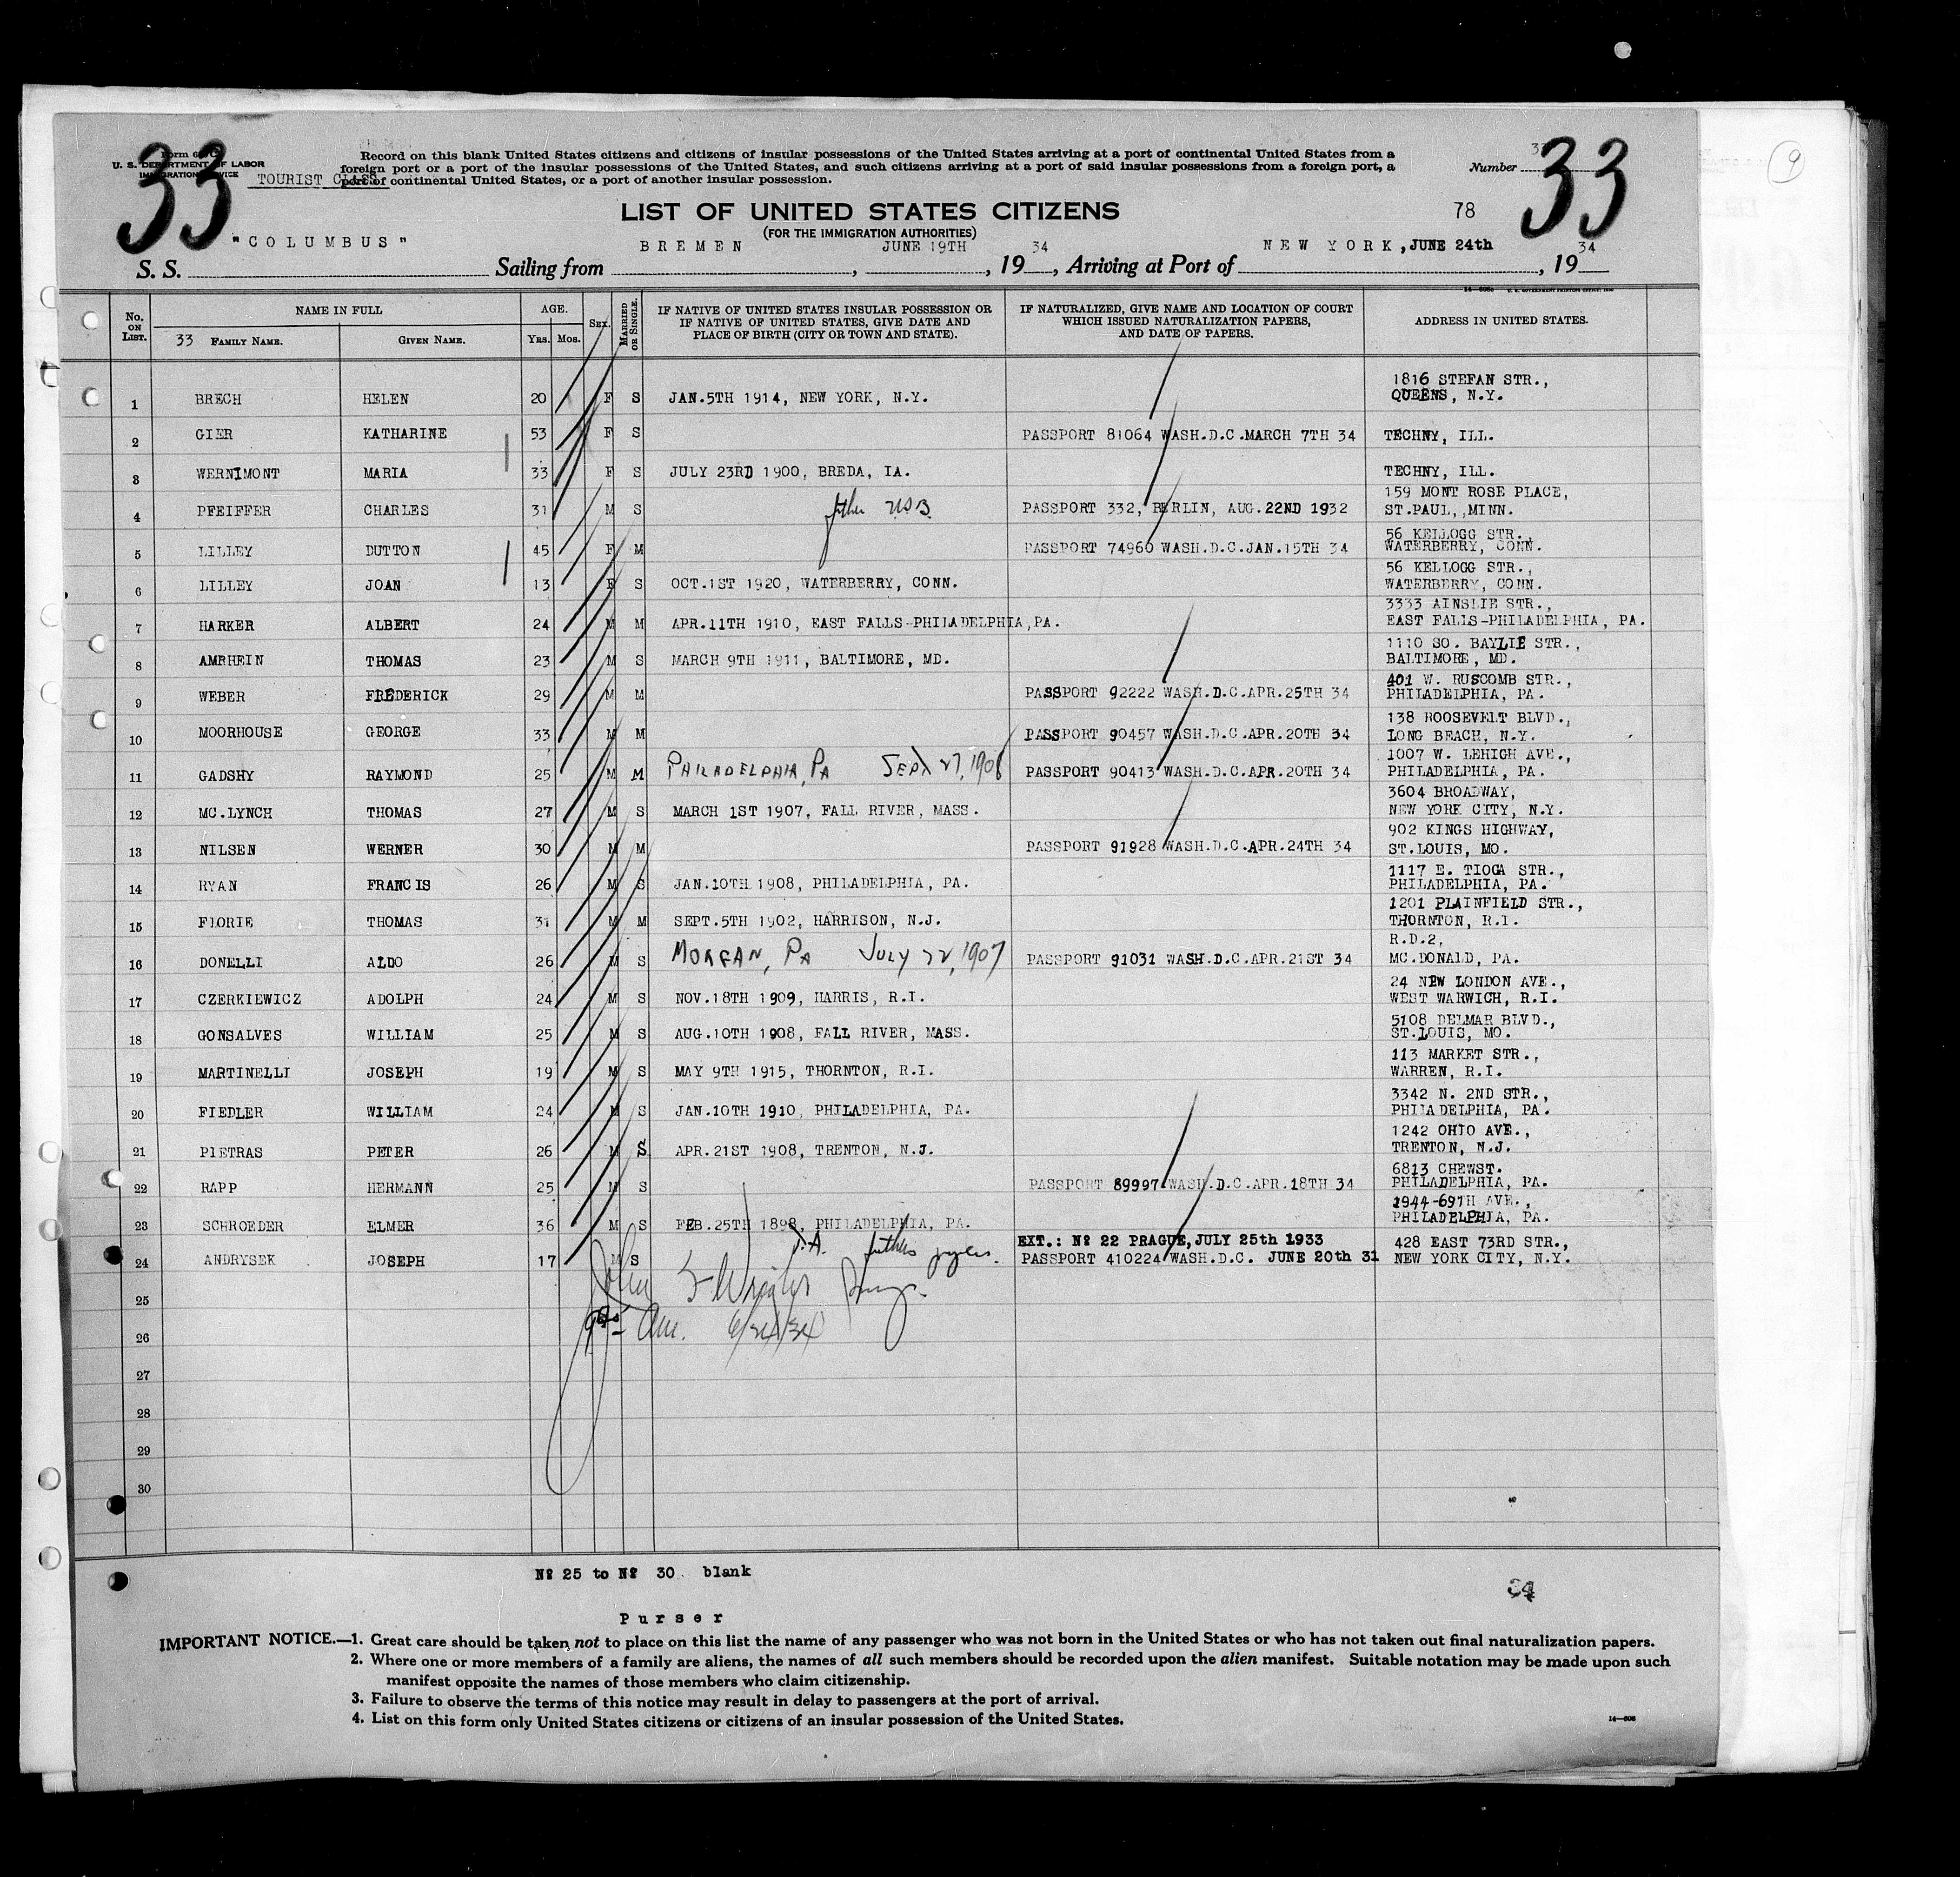 33
33
Form 6
U. S. DEPARTMENT OF LABOR
IMMIGRATION SERVICE
TOURIST CLASS
Record on this blank United States citizens and citizens of insular possessions of the United States arriving at a port of continental United States from a
foreign port or a port of the insular possessions of the United States, and such citizens arriving at a port of said insular possessions from a foreign port, a
port of continental United States, or a port of another insular possession.
Number 33
9
LIST OF UNITED STATES CITIZENS
(FOR THE IMMIGRATION AUTHORITIES)
78
S. S. "COLUMBUS" Sailing from BREMEN, JUNE 19TH, 1934, Arriving at Port of NEW YORK, JUNE 24th, 1934
No. ON LIST. NAME IN FULL AGE. SEX. MARRIED OR SINGLE. IF NATIVE OF UNITED STATES INSULAR POSSESSION OR IF NATIVE OF UNITED STATES, GIVE DATE AND PLACE OF BIRTH (CITY OR TOWN AND STATE). IF NATURALIZED, GIVE NAME AND LOCATION OF COURT WHICH ISSUED NATURALIZATION PAPERS, AND DATE OF PAPERS. ADDRESS IN UNITED STATES.
33 FAMILY NAME. GIVEN NAME. Yrs. Mos.
1 BRECH HELEN 20 F S JAN.5TH 1914, NEW YORK, N.Y. 1816 STEFAN STR., QUEENS, N.Y.
2 GIER KATHARINE 53 F S PASSPORT 81064 WASH.D.C.MARCH 7TH 34 TECHNY, ILL.
3 WERNIMONT MARIA 33 F S JULY 23RD 1900, BREDA, IA. TECHNY, ILL.
4 PFEIFFER CHARLES 31 M S father USB PASSPORT 332, BERLIN, AUG.22ND 1932 159 MONT ROSE PLACE, ST.PAUL, MINN.
5 LILLEY DUTTON 45 F M PASSPORT 74960 WASH.D.C.JAN.15TH 34 56 KELLOGG STR., WATERBERRY, CONN.
6 LILLEY JOAN 13 F S OCT.1ST 1920, WATERBERRY, CONN. 56 KELLOGG STR., WATERBERRY, CONN.
7 HARKER ALBERT 24 M M APR.11TH 1910, EAST FALLS-PHILADELPHIA,PA. 3333 AINSLIE STR., EAST FALLS-PHILADELPHIA, PA.
8 AMRHEIN THOMAS 23 M S MARCH 9TH 1911, BALTIMORE, MD. 1110 SO. BAYLIE STR., BALTIMORE, MD.
9 WEBER FREDERICK 29 M M PASSPORT 92222 WASH.D.C.APR.25TH 34 401 W. RUSCOMB STR., PHILADELPHIA, PA.
10 MOORHOUSE GEORGE 33 M M PASSPORT 90457 WASH.D.C.APR.20TH 34 138 ROOSEVELT BLVD., LONG BEACH, N.Y.
11 GADSHY RAYMOND 25 M M PHILADELPHIA, PA SEPT 27, 1908 PASSPORT 90413 WASH.D.C.APR.20TH 34 1007 W. LEHIGH AVE., PHILADELPHIA, PA.
12 MC.LYNCH THOMAS 27 M S MARCH 1ST 1907, FALL RIVER, MASS. 3604 BROADWAY, NEW YORK CITY, N.Y.
13 NILSEN WERNER 30 M M PASSPORT 91928 WASH.D.C.APR.24TH 34 902 KINGS HIGHWAY, ST.LOUIS, MO.
14 RYAN FRANCIS 26 M S JAN.10TH 1908, PHILADELPHIA, PA. 1117 E. TIOGA STR., PHILADELPHIA, PA.
15 FLORIE THOMAS 31 M M SEPT.5TH 1902, HARRISON, N.J. 1201 PLAINFIELD STR., THORNTON, R.I.
16 DONELLI ALDO 26 M S MORGAN, PA JULY 22, 1907 PASSPORT 91031 WASH.D.C.APR.21ST 34 R.D.2, MC.DONALD, PA.
17 CZERKIEWICZ ADOLPH 24 M S NOV.18TH 1909, HARRIS, R.I. 24 NEW LONDON AVE., WEST WARWICH, R.I.
18 GONSALVES WILLIAM 25 M S AUG.10TH 1908, FALL RIVER, MASS. 5108 DELMAR BLVD., ST.LOUIS, MO.
19 MARTINELLI JOSEPH 19 M S MAY 9TH 1915, THORNTON, R.I. 113 MARKET STR., WARREN, R.I.
20 FIEDLER WILLIAM 24 M S JAN.10TH 1910, PHILADELPHIA, PA. 3342 N. 2ND STR., PHILADELPHIA, PA.
21 PIETRAS PETER 26 M S APR.21ST 1908, TRENTON, N.J. 1242 OHIO AVE., TRENTON, N.J.
22 RAPP HERMANN 25 M S PASSPORT 89997 WASH.D.C.APR.18TH 34 6813 CHEWST. PHILADELPHIA, PA.
23 SCHROEDER ELMER 36 M S FEB.25TH 1898, PHILADELPHIA, PA. 1944-69TH AVE., PHILADELPHIA, PA.
24 ANDRYSEK JOSEPH 17 M S fathers papers. EXT.: Nº 22 PRAGUE, JULY 25th 1933 PASSPORT 410224 WASH.D.C. JUNE 20th 31 428 EAST 73RD STR., NEW YORK CITY, N.Y.
25 John S Wright
26 6/24/34
27
28
29
30
Nº 25 to Nº 30 blank
34
Purser
IMPORTANT NOTICE.—1. Great care should be taken not to place on this list the name of any passenger who was not born in the United States or who has not taken out final naturalization papers.
2. Where one or more members of a family are aliens, the names of all such members should be recorded upon the alien manifest. Suitable notation may be made upon such
manifest opposite the names of those members who claim citizenship.
3. Failure to observe the terms of this notice may result in delay to passengers at the port of arrival.
4. List on this form only United States citizens or citizens of an insular possession of the United States.
14—508